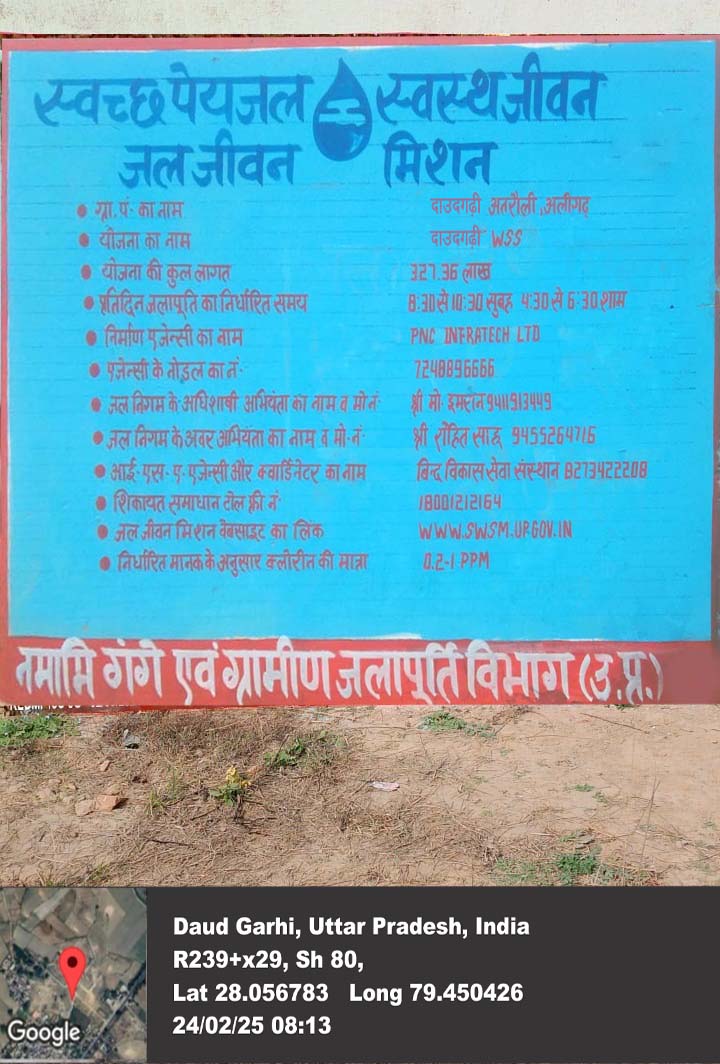 स्वच्छ पेयजल स्वस्थ जीवन
जल जीवन मिशन
• ग्रा. पं. का नाम दाउदगढ़ी अतरौली, अलीगढ़
• योजना का नाम दाउदगढ़ी WSS
• योजना की कुल लागत 327.36 लाख
• प्रतिदिन जलापूर्ति का निर्धारित समय 8:30 से 10:30 सुबह 4:30 से 6:30 शाम
• निर्माण एजेन्सी का नाम PNC INFRATECH LTD
• एजेन्सी के नोडल का नं. 7248896666
• जल निगम के अधिशाषी अभियंता का नाम व मो नं. श्री मो. इमरान 9411913449
• जल निगम के अवर अभियंता का नाम व मो. नं. श्री रोहित साहू 9455264716
• आई. एस. ए. एजेन्सी और क्वार्डिनेटर का नाम बिन्द विकास सेवा संस्थान 8273422208
• शिकायत समाधान टोल फ्री नं. 18001212164
• जल जीवन मिशन वेबसाइट का लिंक WWW.SWSM.UP.GOV.IN
• निर्धारित मानक के अनुसार क्लोरीन की मात्रा 0.2-1 PPM
नमामि गंगे एवं ग्रामीण जलापूर्ति विभाग (उ.प्र.)
Daud Garhi, Uttar Pradesh, India
R239+x29, Sh 80,
Lat 28.056783 Long 79.450426
24/02/25 08:13
Google